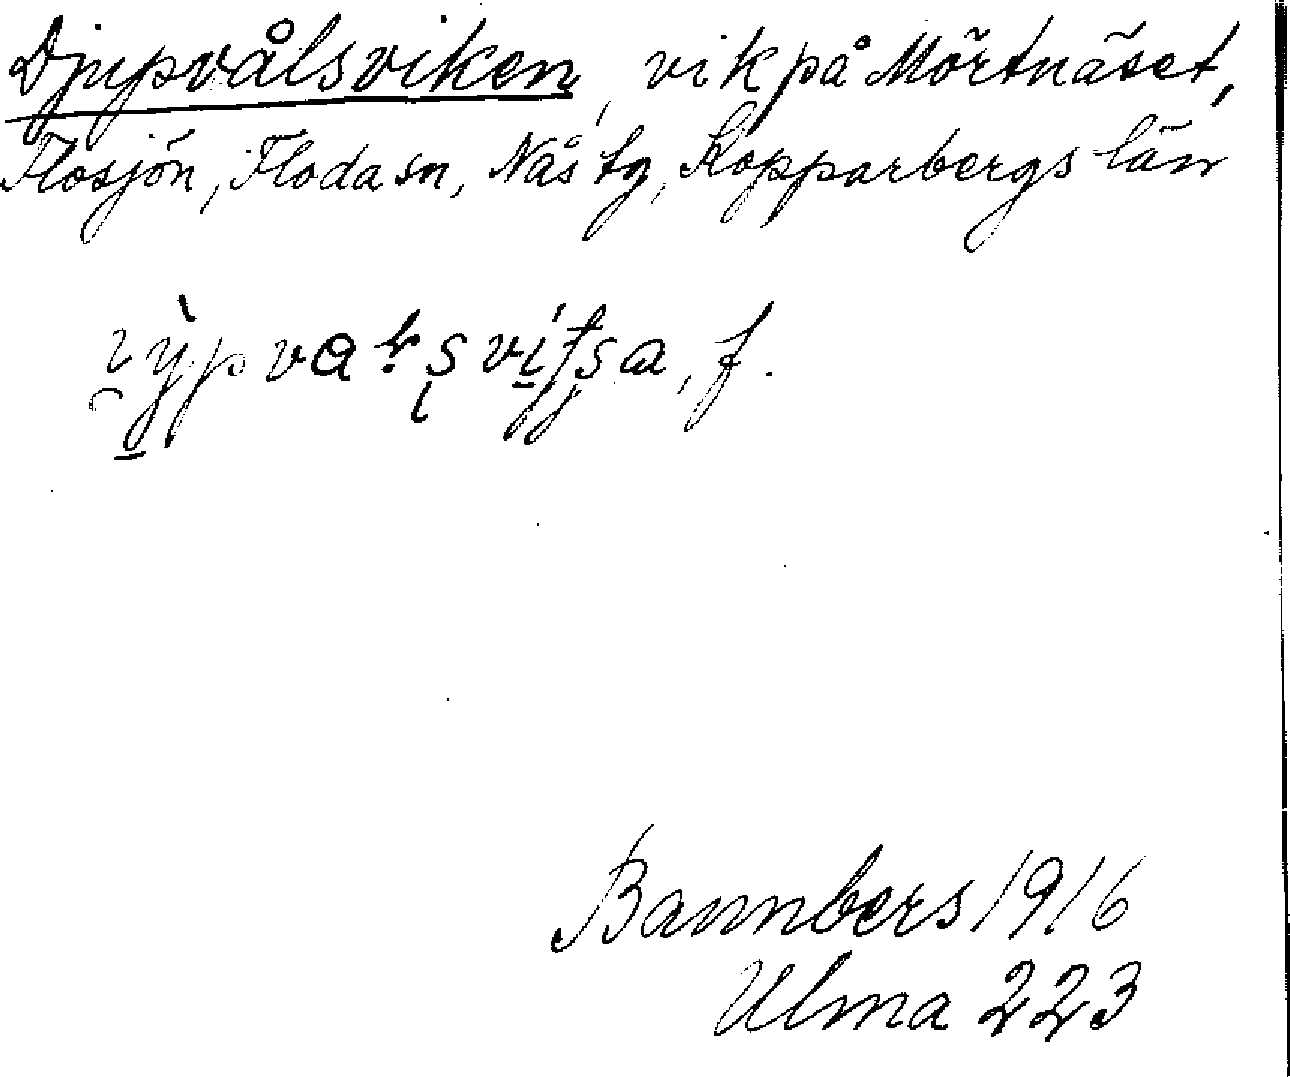 Djupvålsviken, vik på Mörtnäset,
Flosjön, Floda sn, Nås tg, Kopparbergs län
f.
Bannbers 1916
Ulma 223